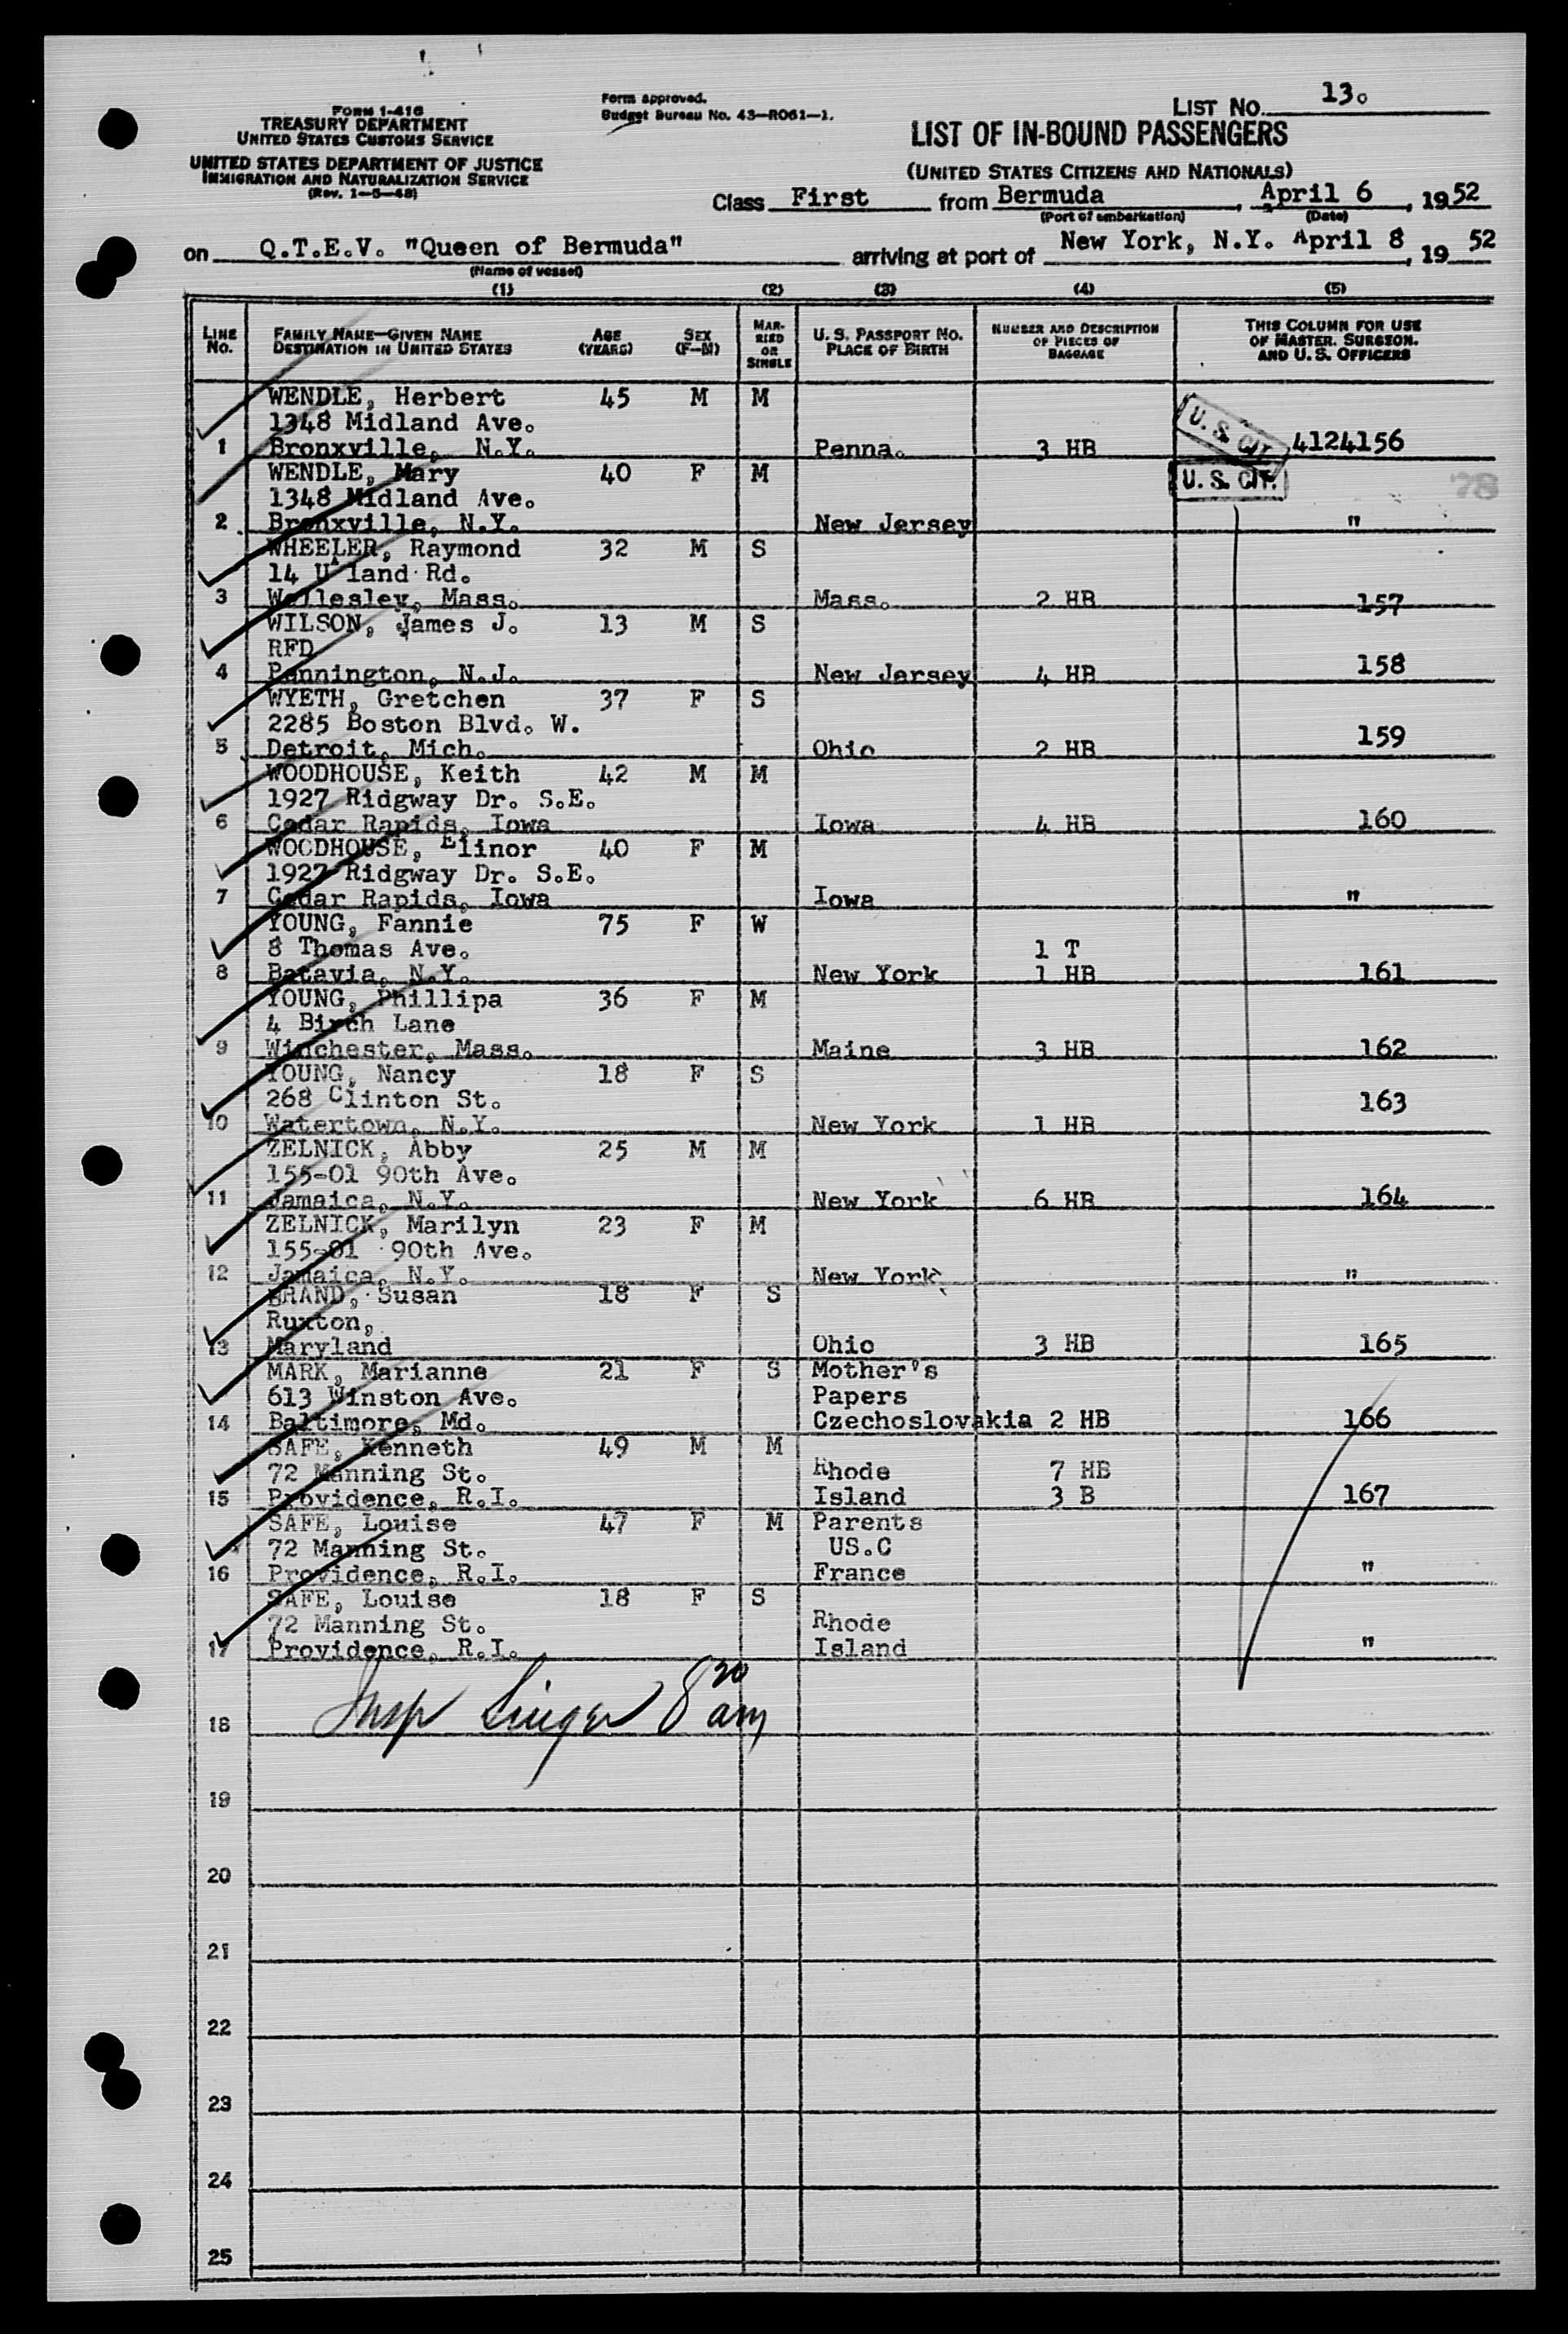 FORM I-416
TREASURY DEPARTMENT
UNITED STATES CUSTOMS SERVICE
UNITED STATES DEPARTMENT OF JUSTICE
IMMIGRATION AND NATURALIZATION SERVICE
(Rev. 1-5-48)
Form approved.
Budget Bureau No. 43-R061-1.
LIST No. 13.
LIST OF IN-BOUND PASSENGERS
(UNITED STATES CITIZENS AND NATIONALS)
Class First from Bermuda, April 6, 1952
(Port of embarkation) (Date)
on Q.T.E.V. "Queen of Bermuda" arriving at port of New York, N.Y. April 8, 1952
(Name of vessel)
(1) (2) (3) (4) (5)
LINE No. FAMILY NAME—GIVEN NAME DESTINATION IN UNITED STATES AGE (YEARS) SEX (F—M) MARRIED OR SINGLE U. S. PASSPORT NO. PLACE OF BIRTH NUMBER AND DESCRIPTION OF PIECES OF BAGGAGE THIS COLUMN FOR USE OF MASTER, SURGEON, AND U. S. OFFICERS
WENDLE, Herbert 45 M M
1348 Midland Ave. U. S. CIT.
1 Bronxville, N.Y. Penna. 3 HB 4124156
WENDLE, Mary 40 F M U. S. CIT.
1348 Midland Ave. 78
2 Bronxville, N.Y. New Jersey "
WHEELER, Raymond 32 M S
14 U land Rd.
3 Wellesley, Mass. Mass. 2 HB 157
WILSON, James J. 13 M S
RFD
4 Pennington, N.J. New Jersey 4 HB 158
WYETH, Gretchen 37 F S
2285 Boston Blvd. W.
5 Detroit, Mich. Ohio 2 HB 159
WOODHOUSE, Keith 42 M M
1927 Ridgway Dr. S.E.
6 Cedar Rapids, Iowa Iowa 4 HB 160
WOODHOUSE, Elinor 40 F M
1927 Ridgway Dr. S.E.
7 Cedar Rapids, Iowa Iowa "
YOUNG, Fannie 75 F W
8 Thomas Ave. 1 T
8 Batavia, N.Y. New York 1 HB 161
YOUNG, Phillipa 36 F M
4 Birch Lane
9 Winchester, Mass. Maine 3 HB 162
YOUNG, Nancy 18 F S
268 Clinton St. 163
10 Watertown, N.Y. New York 1 HB
ZELNICK, Abby 25 M M
155-01 90th Ave.
11 Jamaica, N.Y. New York 6 HB 164
ZELNICK, Marilyn 23 F M
155-01 90th Ave.
12 Jamaica, N.Y. New York "
BRAND, Susan 18 F S
Ruxton,
13 Maryland Ohio 3 HB 165
MARK, Marianne 21 F S Mother's
613 Winston Ave. Papers
14 Baltimore, Md. Czechoslovakia 2 HB 166
SAFE, Kenneth 49 M M
72 Manning St. Rhode 7 HB
15 Providence, R.I. Island 3 B 167
SAFE, Louise 47 F M Parents
72 Manning St. US.C
16 Providence, R.I. France "
SAFE, Louise 18 F S
72 Manning St. Rhode
17 Providence, R.I. Island "
Insp Singer 8 20 am
18
19
20
21
22
23
24
25